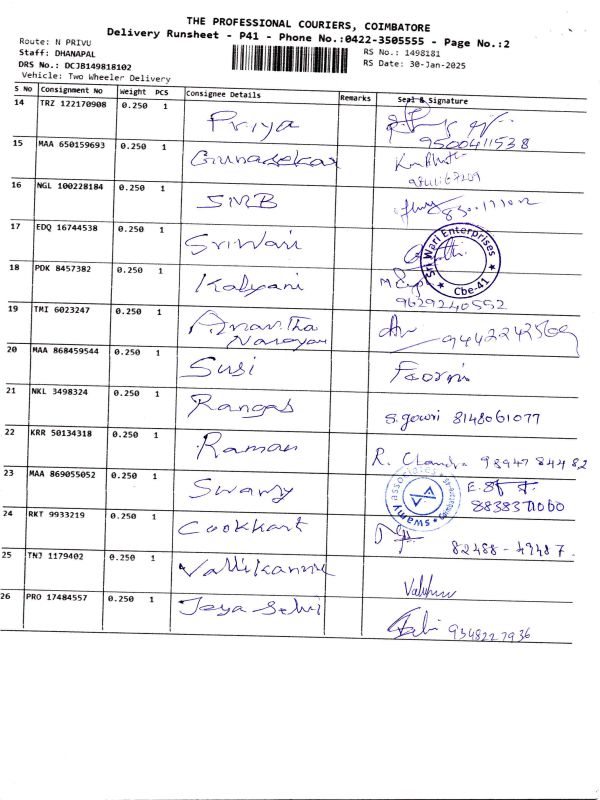 THE PROFESSIONAL COURIERS, COIMBATORE
Delivery Runsheet - P41 - Phone No.:0422-3505555 - Page No.:2
Route: N PRIVU
Staff: DHANAPAL
DRS No.: DCJB149818102
Vehicle: Two Wheeler Delivery
RS No.: 1498181
RS Date: 30-Jan-2025
S No Consignment No Weight PCS Consignee Details Remarks Seal & Signature
14 TRZ 122170908 0.250 1 Priya
9500411538
15 MAA 650159693 0.250 1 Gunasekar
16 NGL 100228184 0.250 1 SMB
17 EDQ 16744538 0.250 1 Sriwari
Sri Wari Enterprises
★ Cbe-41 ★
18 PDK 8457382 0.250 1 Kalyani
9629240552
19 TMI 6023247 0.250 1 Anantha
Narayan
9442242569
20 MAA 868459544 0.250 1 Susi
21 NKL 3498324 0.250 1 Rangas S.gowri 8148061077
22 KRR 50134318 0.250 1 Raman R. Chandra 98947 84482
23 MAA 869055052 0.250 1 Swamy
swamy associates
24 RKT 9933219 0.250 1 Cookkart
82488-49487.
25 TNJ 1179402 0.250 1 Vallikannu
26 PRO 17484557 0.250 1 Jaya Selvi
9348227936